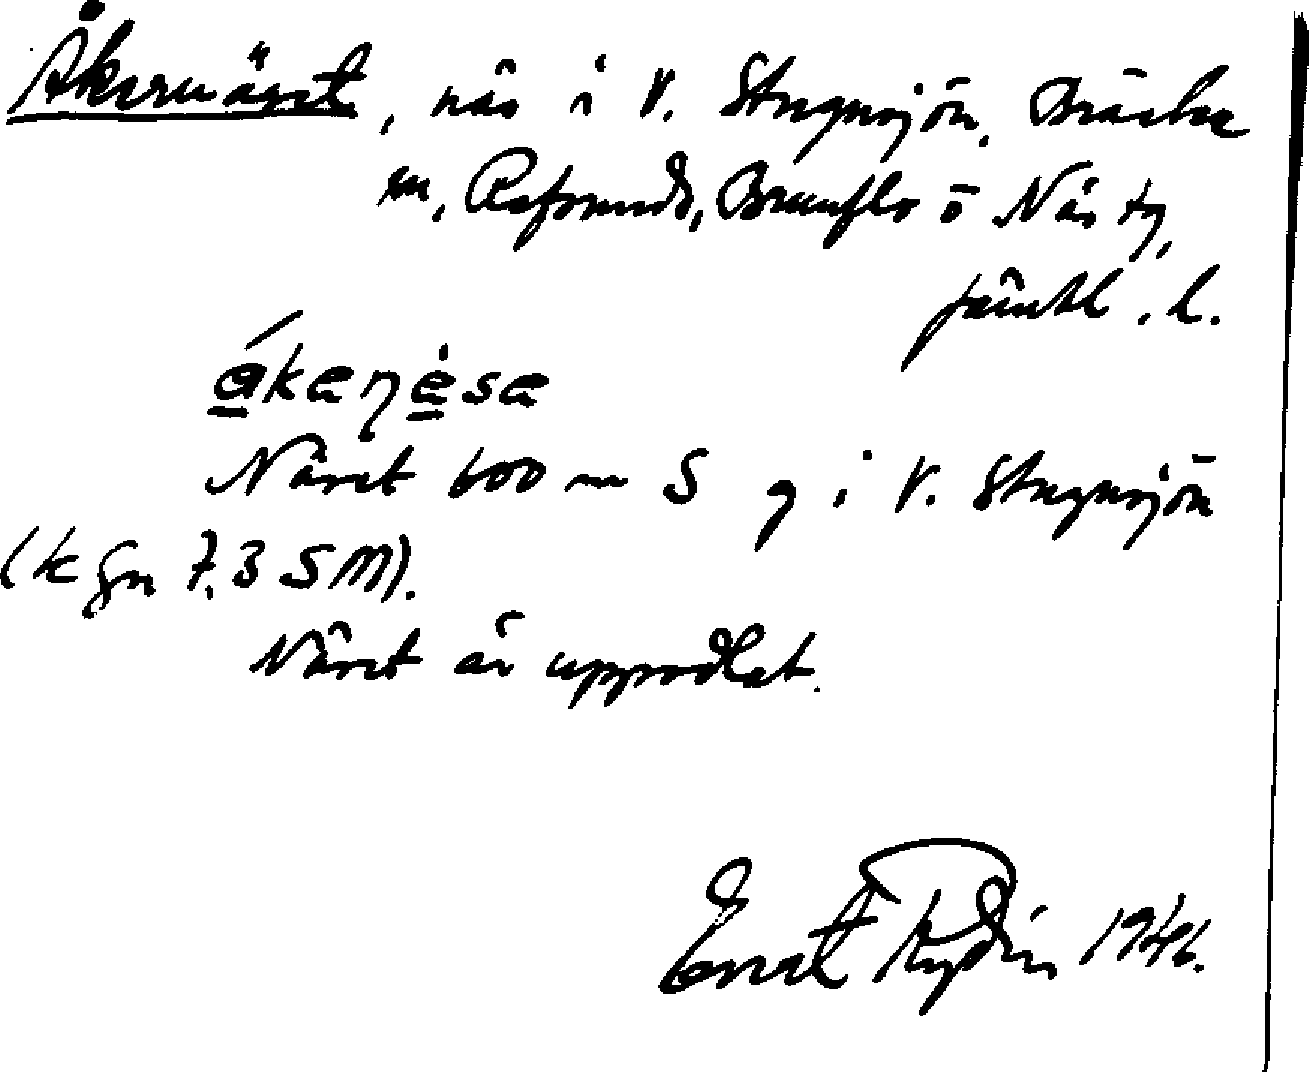 Åkernäset, näs i V. Stugusjön, Bräcke
sn, Refsunds, Brunflo o Näs tg,
Jämtl. l.
Näset 600 m S g i V. Stugusjön
(k gn 7.3 SM).
Näset är uppodlat.
Rydin 1946.